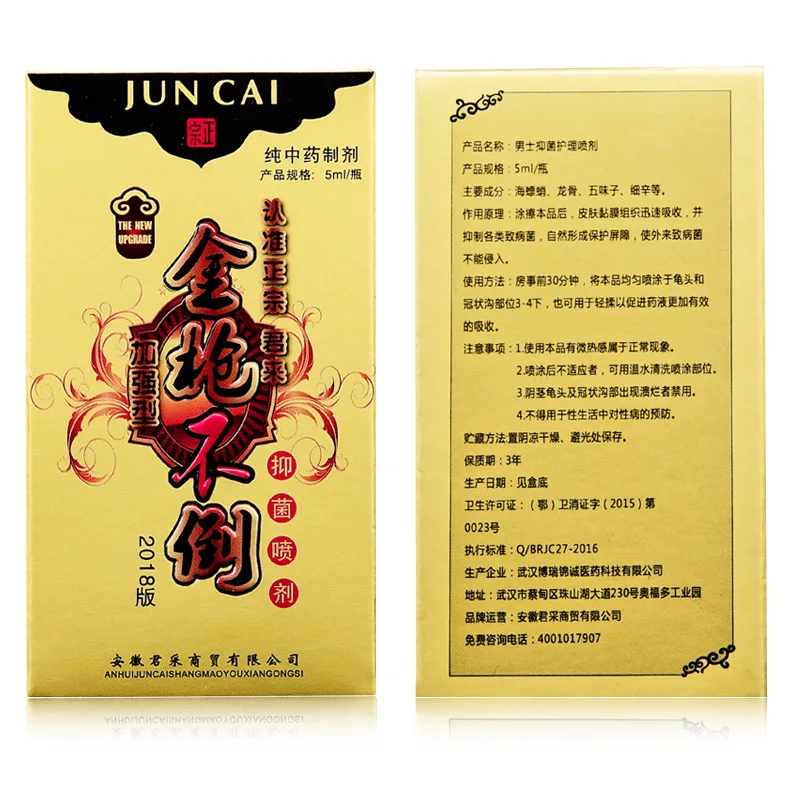 JUN CAI
正宗
纯中药制剂
产品规格: 5ml/瓶
THE NEW
UPGRADE
认准正宗 君采
金枪不倒
加强型
抑菌喷剂
2018版
安徽君采商贸有限公司
ANHUIJUNCAISHANGMAOYOUXIANGONGSI
产品名称: 男士抑菌护理喷剂
产品规格: 5ml/瓶
主要成分: 海螵蛸、龙骨、五味子、细辛等。
作用原理: 涂擦本品后, 皮肤黏膜组织迅速吸收, 并
抑制各类致病菌, 自然形成保护屏障, 使外来致病菌
不能侵入。
使用方法: 房事前30分钟, 将本品均匀喷涂于龟头和
冠状沟部位3-4下, 也可用于轻揉以促进药液更加有效
的吸收。
注意事项: 1.使用本品有微热感属于正常现象。
2.喷涂后不适应者, 可用温水清洗喷涂部位。
3.阴茎龟头及冠状沟部出现溃烂者禁用。
4.不得用于性生活中对性病的预防。
贮藏方法:置阴凉干燥、避光处保存。
保质期: 3年
生产日期: 见盒底
卫生许可证: (鄂) 卫消证字 (2015) 第
0023号
执行标准: Q/BRJC27-2016
生产企业: 武汉博瑞锦诚医药科技有限公司
地址: 武汉市蔡甸区珠山湖大道230号奥福多工业园
品牌运营: 安徽君采商贸有限公司
免费咨询电话: 4001017907